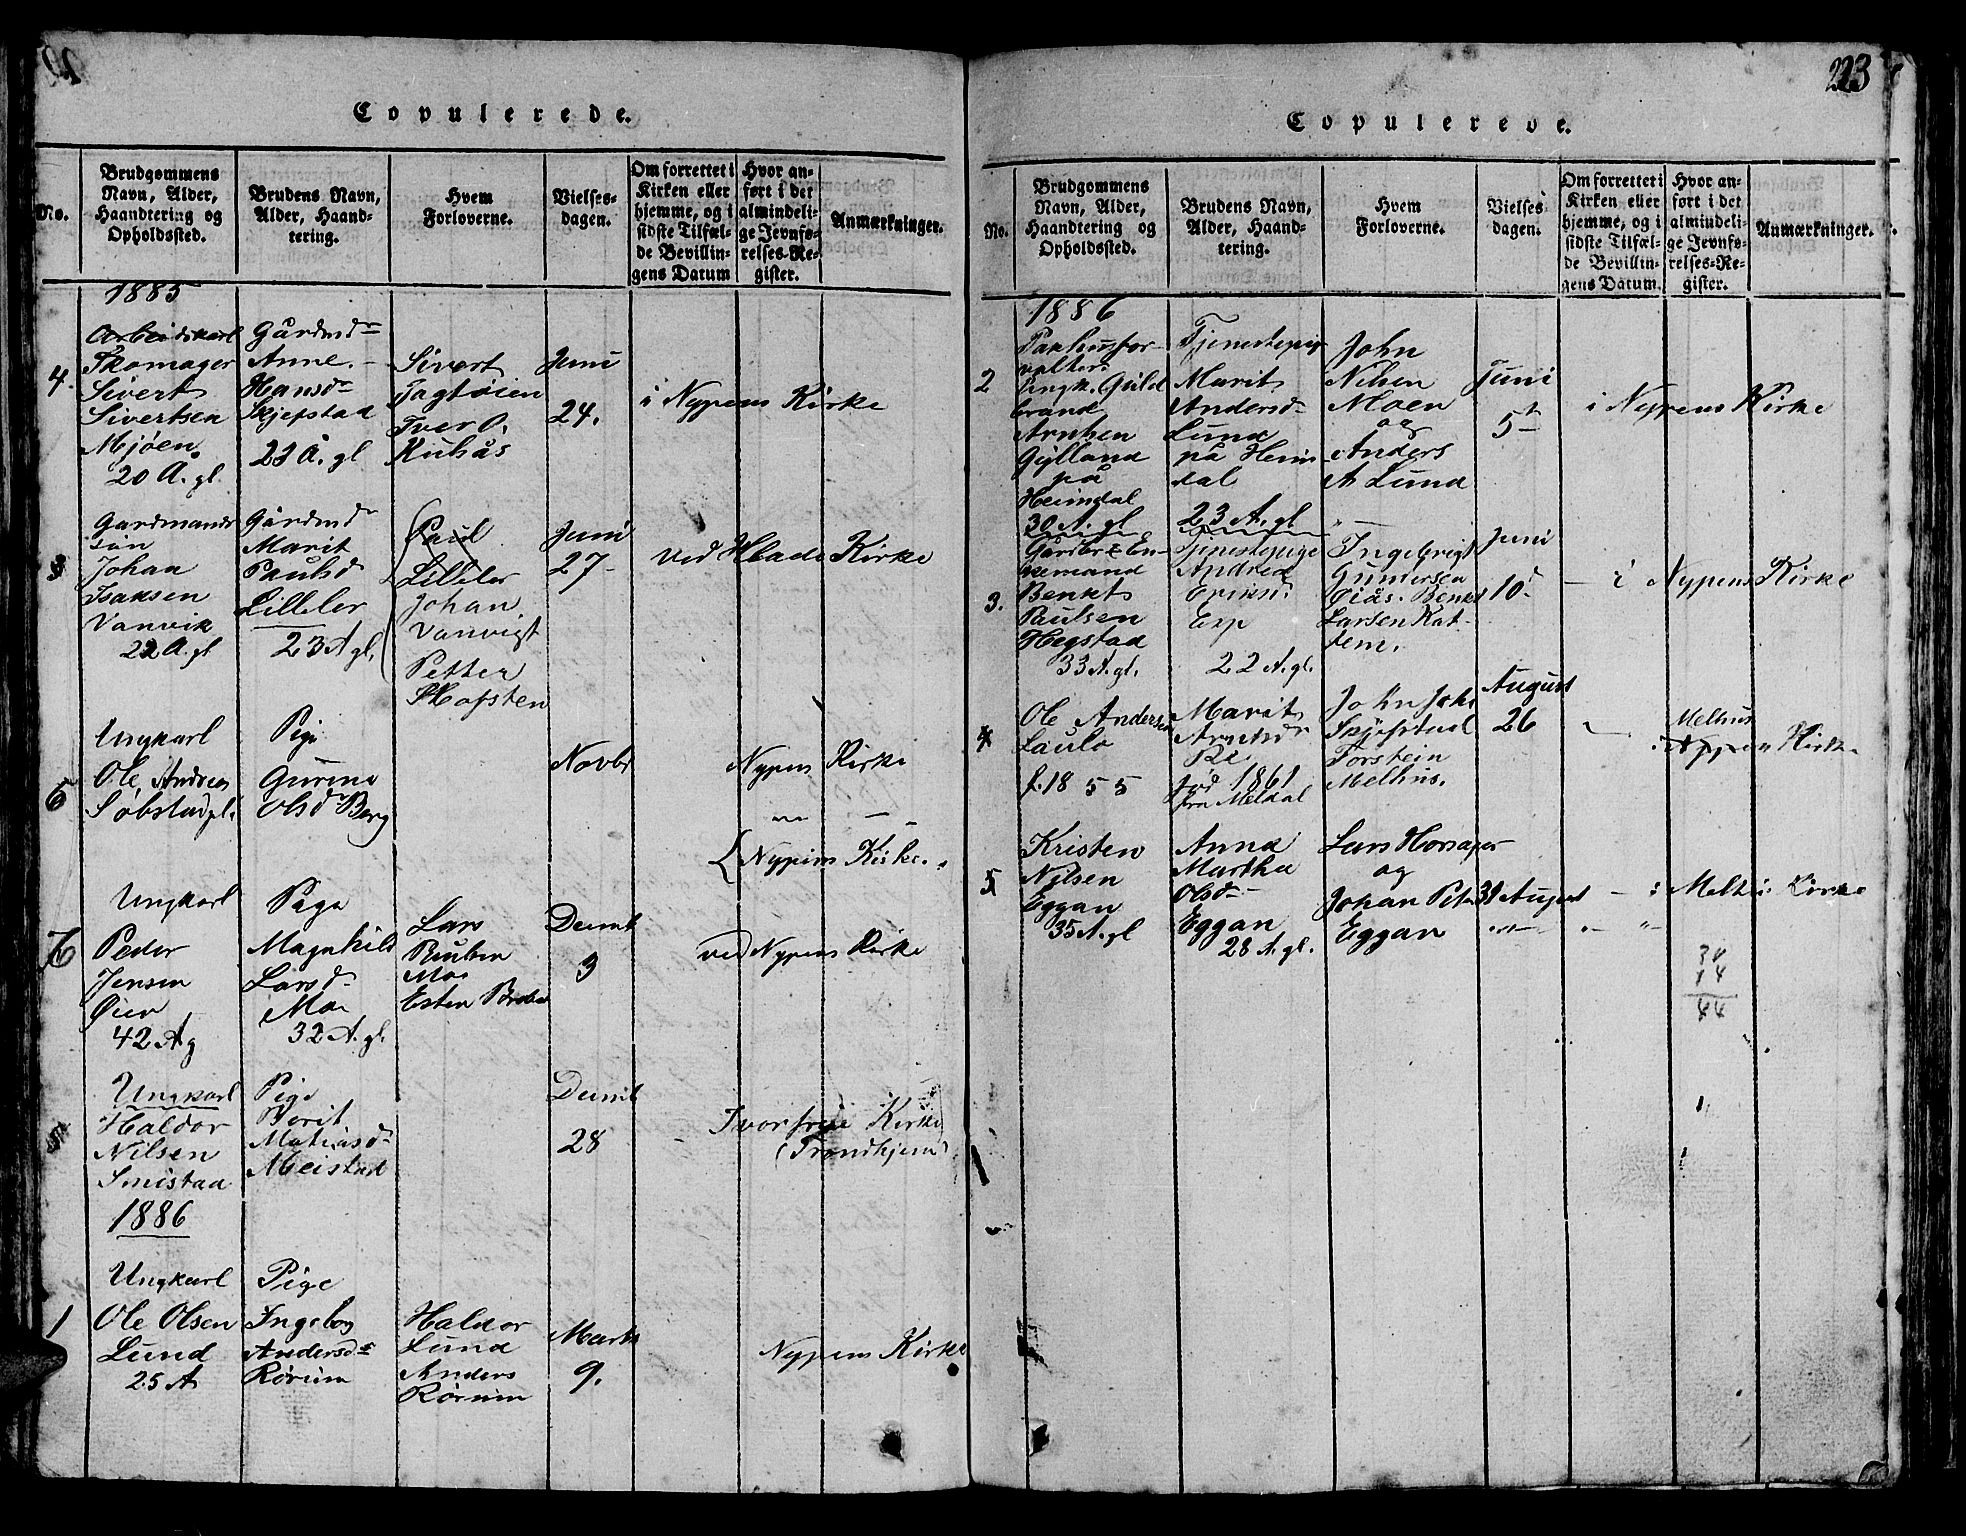 Copulerede.
No.
Brudgommens Navn, Alder, Haandtering og Opholdssted.
Brudens Navn, Alder, Haandtering.
Hvem Forloverne.
Vielsesdagen.
Om forrettet i Kirken eller hjemme, og i sidste Tilfælde Bevillingens Datum
Hvor anført i det almindelige Jevnførelses-Register.
Anmærkninger.
1885
4.
Arbeidskarl
Skomager
Sivert
Sivertsen
Mjøen
20 A. gl.
Gårdmd
Anne
Hansd
Skjefstad
23 A. gl
Sivert
Fagtøien
Iver O.
Kuhås
Juni
24.
i Nypens Kirke
Gardmands
søn
Johan
Isaksen
Vanvik
22 A. gl
Gårdmd
Marit
Paulsd
Lilleler
23 A gl.
Paul
Lilleler
Johan
Vanvigt
Petter
Hofsten
Juni
27
ved Hlade Kirke
6
Ungkarl
Ole Andreas
Sobstadpl.
Pige
Gurine
Olsd Berg
Novbr
Nypens Kirke
Nypens Kirke.
7
Ungkarl
Peder
Jensen
Øier
42 A g
Pige
Magnhild
Larsd
Moe
32 A. gl.
Lars
Reuben
Moe
Esten
3
ved Nypens Kirke
Ungkarl
Haldor
Nilsen
Smistad
Pige
Berit
Matiasd
Meistad
28
Kirke
(Trondhjem)
1886
1
Ungkarl
Ole Olsen
Lund
25 A
Pige
Ingebor
Andersd
Rørum
Haldor
Lund
Anders
Rørum
Marts
9.
Nypens Kirke
223
Copulerede.
No.
Brudgommens Navn, Alder, Haandtering og Opholdssted.
Brudens Navn, Alder, Haandtering.
Hvem Forloverne.
Vielsesdagen.
Om forrettet i Kirken eller hjemme, og i sidste Tilfælde Bevillingens Datum.
Hvor anført i det almindelige Jevnførelses-Register.
Anmærkninger.
1886
2
Pakhusfor-
valter
Ungk. Guld
brand
Arnhen
Gylland
på
Heimdal
30 A. gl
Tjenestepige
Marit
Andersd
Lund
på Heim
dal
23 A. gl
John
Nilsen
Moen
og
Anders
A Lund
Juni
5
i Nypens Kirke
3.
Gårdbr En-
kemand
Benkt
Paulsen
Hegstad
33 A. gl.
Tjenestepige
Andrea
Eriksd.
Esp
22 A. gl.
Ingebrigt
Gundersen
Benkt
Larsen Kat-
tem.
Juni
10
i Nypens Kirke
4
Ole Andersen
Laulo
f. 1855
Marit
Arntsd
Re
fød 1861
fra Meldal
John Joh
Skjefstad
Torstein
Melhus.
August
26
Melhus
i Nypen Kirke
5
Kristen
Nilsen
Eggan
35 A. gl
Anna
Martha
Olsd
Eggan
28 A. gl.
Lars Horsager
og
Johan Peter
Eggan
31 August
i Melhus Kirke